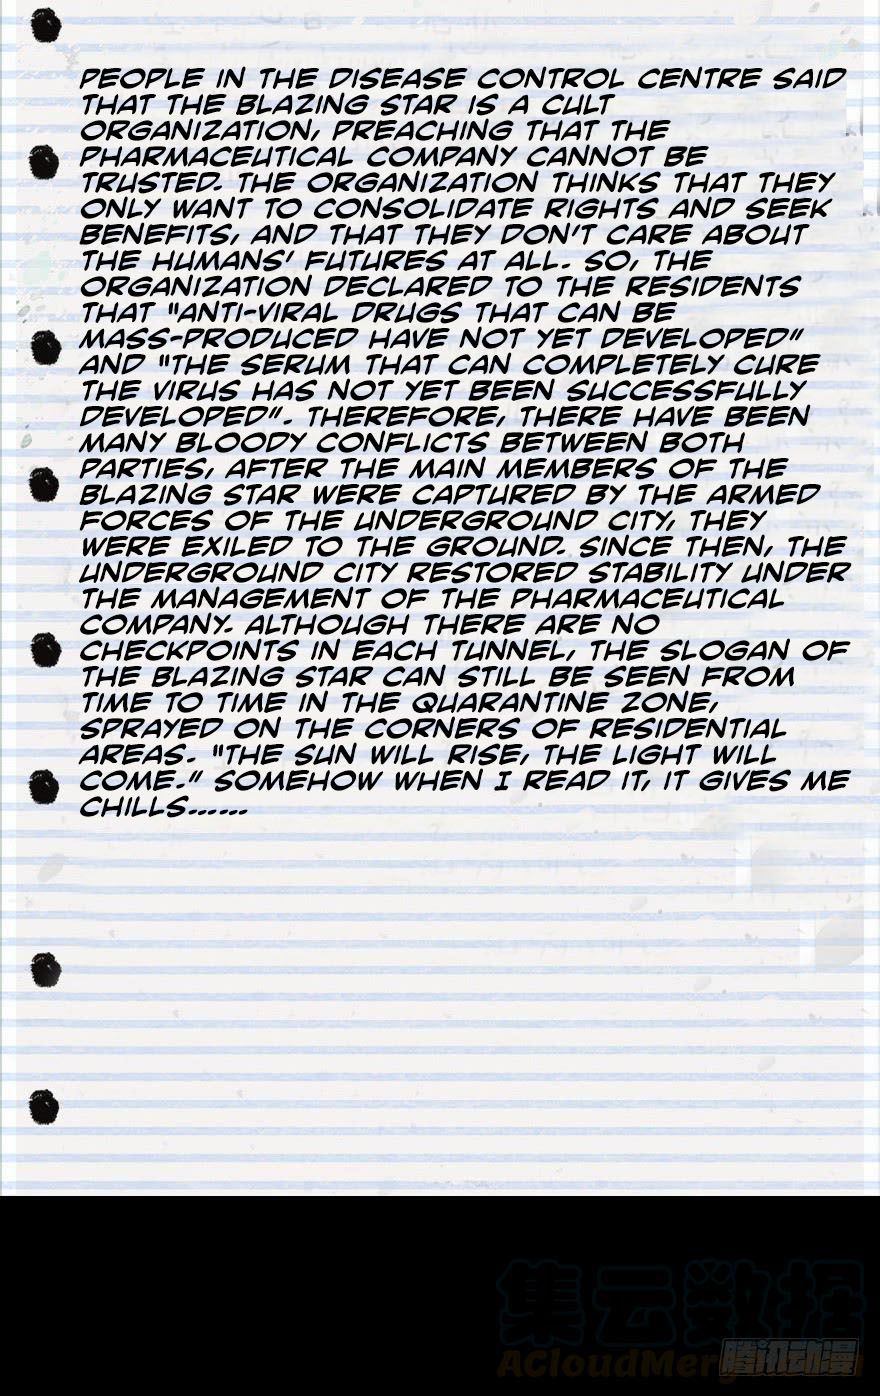 PEOPLE IN THE DISEASE CONTROL CENTRE SAID
THAT THE BLAZING STAR IS A CULT
ORGANIZATION, PREACHING THAT THE
PHARMACEUTICAL COMPANY CANNOT BE
TRUSTED. THE ORGANIZATION THINKS THAT THEY
ONLY WANT TO CONSOLIDATE RIGHTS AND SEEK
BENEFITS, AND THAT THEY DON'T CARE ABOUT
THE HUMANS' FUTURES AT ALL. SO, THE
ORGANIZATION DECLARED TO THE RESIDENTS
THAT "ANTI-VIRAL DRUGS THAT CAN BE
MASS-PRODUCED HAVE NOT YET DEVELOPED"
AND "THE SERUM THAT CAN COMPLETELY CURE
THE VIRUS HAS NOT YET BEEN SUCCESSFULLY
DEVELOPED". THEREFORE, THERE HAVE BEEN
MANY BLOODY CONFLICTS BETWEEN BOTH
PARTIES, AFTER THE MAIN MEMBERS OF THE
BLAZING STAR WERE CAPTURED BY THE ARMED
FORCES OF THE UNDERGROUND CITY, THEY
WERE EXILED TO THE GROUND. SINCE THEN, THE
UNDERGROUND CITY RESTORED STABILITY UNDER
THE MANAGEMENT OF THE PHARMACEUTICAL
COMPANY. ALTHOUGH THERE ARE NO
CHECKPOINTS IN EACH TUNNEL, THE SLOGAN OF
THE BLAZING STAR CAN STILL BE SEEN FROM
TIME TO TIME IN THE QUARANTINE ZONE,
SPRAYED ON THE CORNERS OF RESIDENTIAL
AREAS. "THE SUN WILL RISE, THE LIGHT WILL
COME." SOMEHOW WHEN I READ IT, IT GIVES ME
CHILLS......
集云数据
腾讯动漫